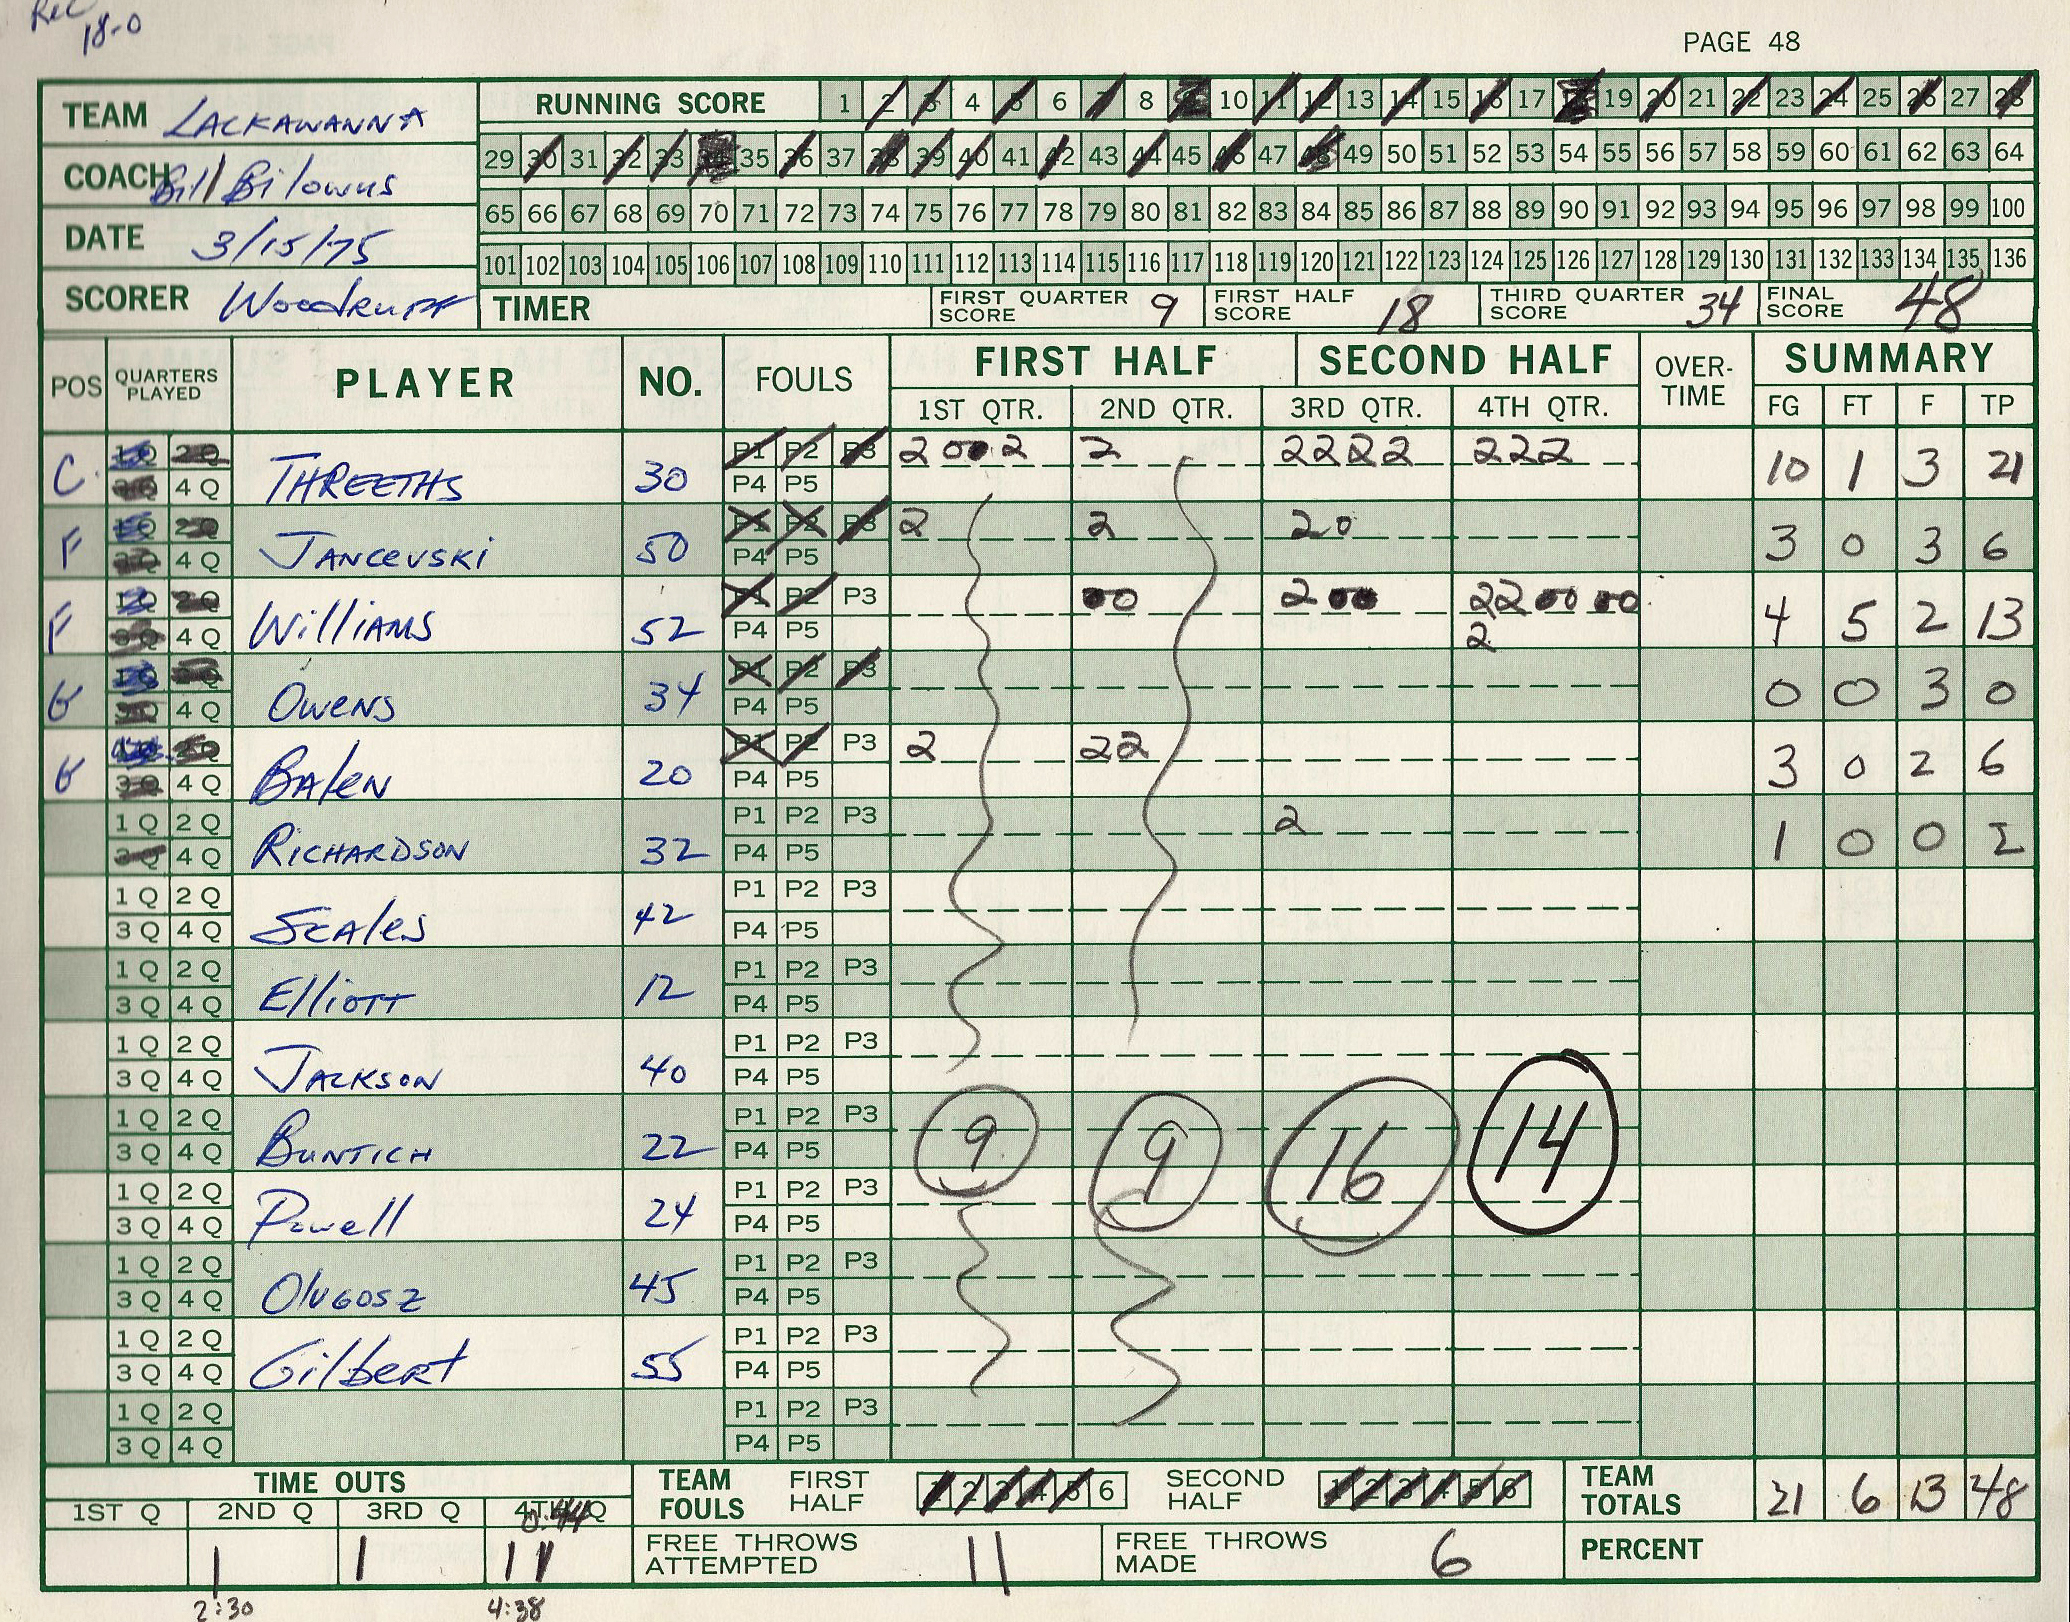 Rec
18-0
PAGE 48
TEAM LACKAWANNA
RUNNING SCORE 1 2 3 4 5 6 7 8 9 10 11 12 13 14 15 16 17 18 19 20 21 22 23 24 25 26 27 28
29 30 31 32 33 34 35 36 37 38 39 40 41 42 43 44 45 46 47 48 49 50 51 52 53 54 55 56 57 58 59 60 61 62 63 64
COACH Bill Bilowus
65 66 67 68 69 70 71 72 73 74 75 76 77 78 79 80 81 82 83 84 85 86 87 88 89 90 91 92 93 94 95 96 97 98 99 100
DATE 3/15/75
101 102 103 104 105 106 107 108 109 110 111 112 113 114 115 116 117 118 119 120 121 122 123 124 125 126 127 128 129 130 131 132 133 134 135 136
SCORER Woodruff
TIMER FIRST QUARTER SCORE 9 FIRST HALF SCORE 18 THIRD QUARTER SCORE 34 FINAL SCORE 48
POS QUARTERS PLAYED PLAYER NO. FOULS FIRST HALF SECOND HALF OVER-TIME SUMMARY
1ST QTR. 2ND QTR. 3RD QTR. 4TH QTR. FG FT F TP
C 1Q 2Q THREETHS 30 P1 P2 P3 2 0 0 2 2 2222 222 10 1 3 21
3Q 4Q P4 P5
F 1Q 2Q JANCEVSKI 50 P1 P2 P3 2 2 20 3 0 3 6
3Q 4Q P4 P5
F 1Q 2Q Williams 52 P1 P2 P3 00 2 00 22 00 00 4 5 2 13
3Q 4Q P4 P5 2
G 1Q 2Q Owens 34 P1 P2 P3 0 0 3 0
3Q 4Q P4 P5
G 1Q 2Q Balen 20 P1 P2 P3 2 22 3 0 2 6
3Q 4Q P4 P5
1Q 2Q RICHARDSON 32 P1 P2 P3 2 1 0 0 2
3Q 4Q P4 P5
1Q 2Q Scales 42 P1 P2 P3
3Q 4Q P4 P5
1Q 2Q Elliott 12 P1 P2 P3
3Q 4Q P4 P5
1Q 2Q JACKSON 40 P1 P2 P3
3Q 4Q P4 P5
1Q 2Q BUNTICH 22 P1 P2 P3 9 9 16 14
3Q 4Q P4 P5
1Q 2Q Powell 24 P1 P2 P3
3Q 4Q P4 P5
1Q 2Q Olugosz 45 P1 P2 P3
3Q 4Q P4 P5
1Q 2Q Gilbert 55 P1 P2 P3
3Q 4Q P4 P5
1Q 2Q P1 P2 P3
3Q 4Q P4 P5
TIME OUTS TEAM FOULS FIRST HALF 1 2 3 4 5 6 SECOND HALF 1 2 3 4 5 6 TEAM TOTALS 21 6 13 48
1ST Q 2ND Q 3RD Q 4TH Q
0:44
1 1 1 1 FREE THROWS ATTEMPTED 11 FREE THROWS MADE 6 PERCENT
2:30 4:38